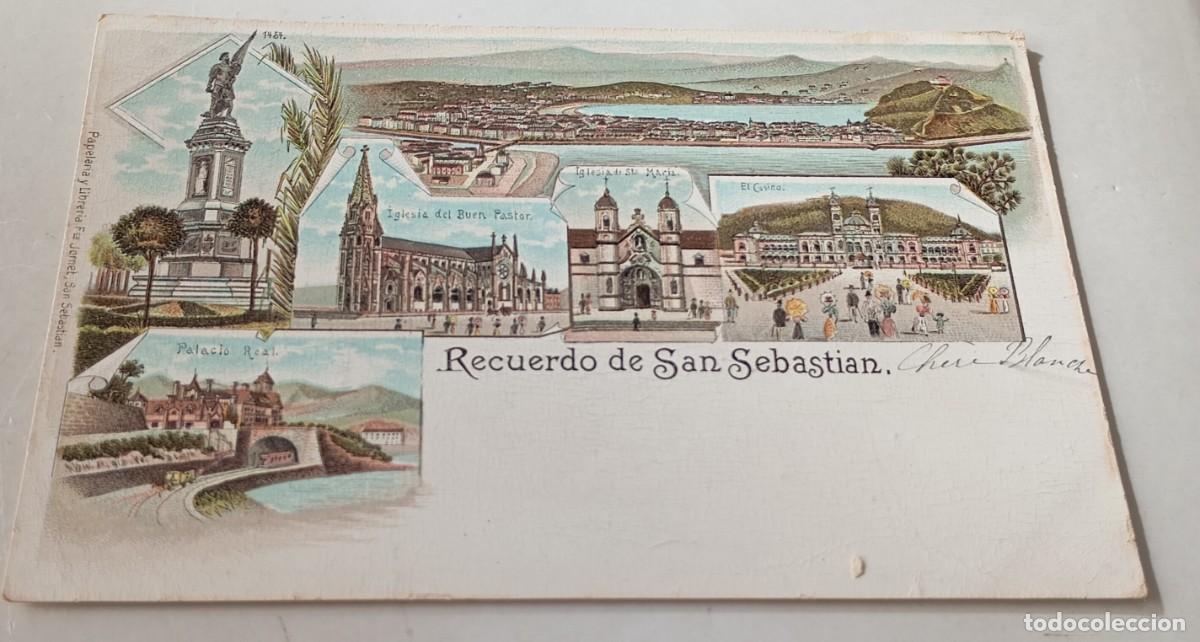 1484.
Papeleria y Libreria Fco Jornet, San Sebastian.
Iglesia del Buen Pastor.
Iglesia di Sta Maria.
El Casino.
Palacio Real.
Recuerdo de San Sebastian.
Chère Blanche
todocoleccion